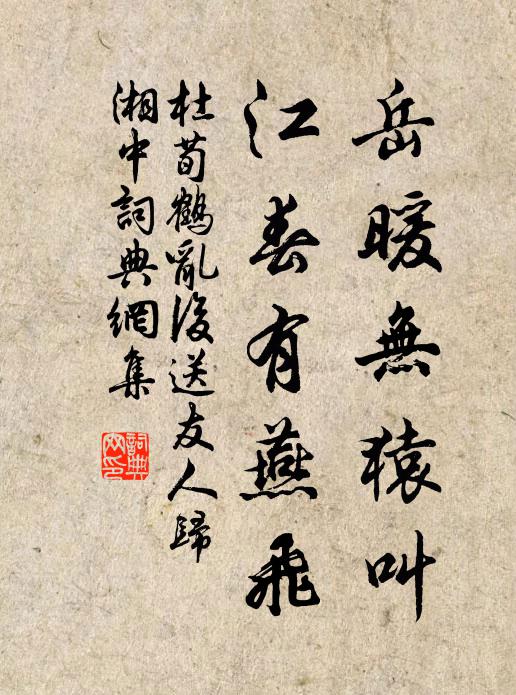 岳暖無猿叫
江春有燕飛
杜荀鶴亂後送友人歸
湘中詞典網集
詞典
网印